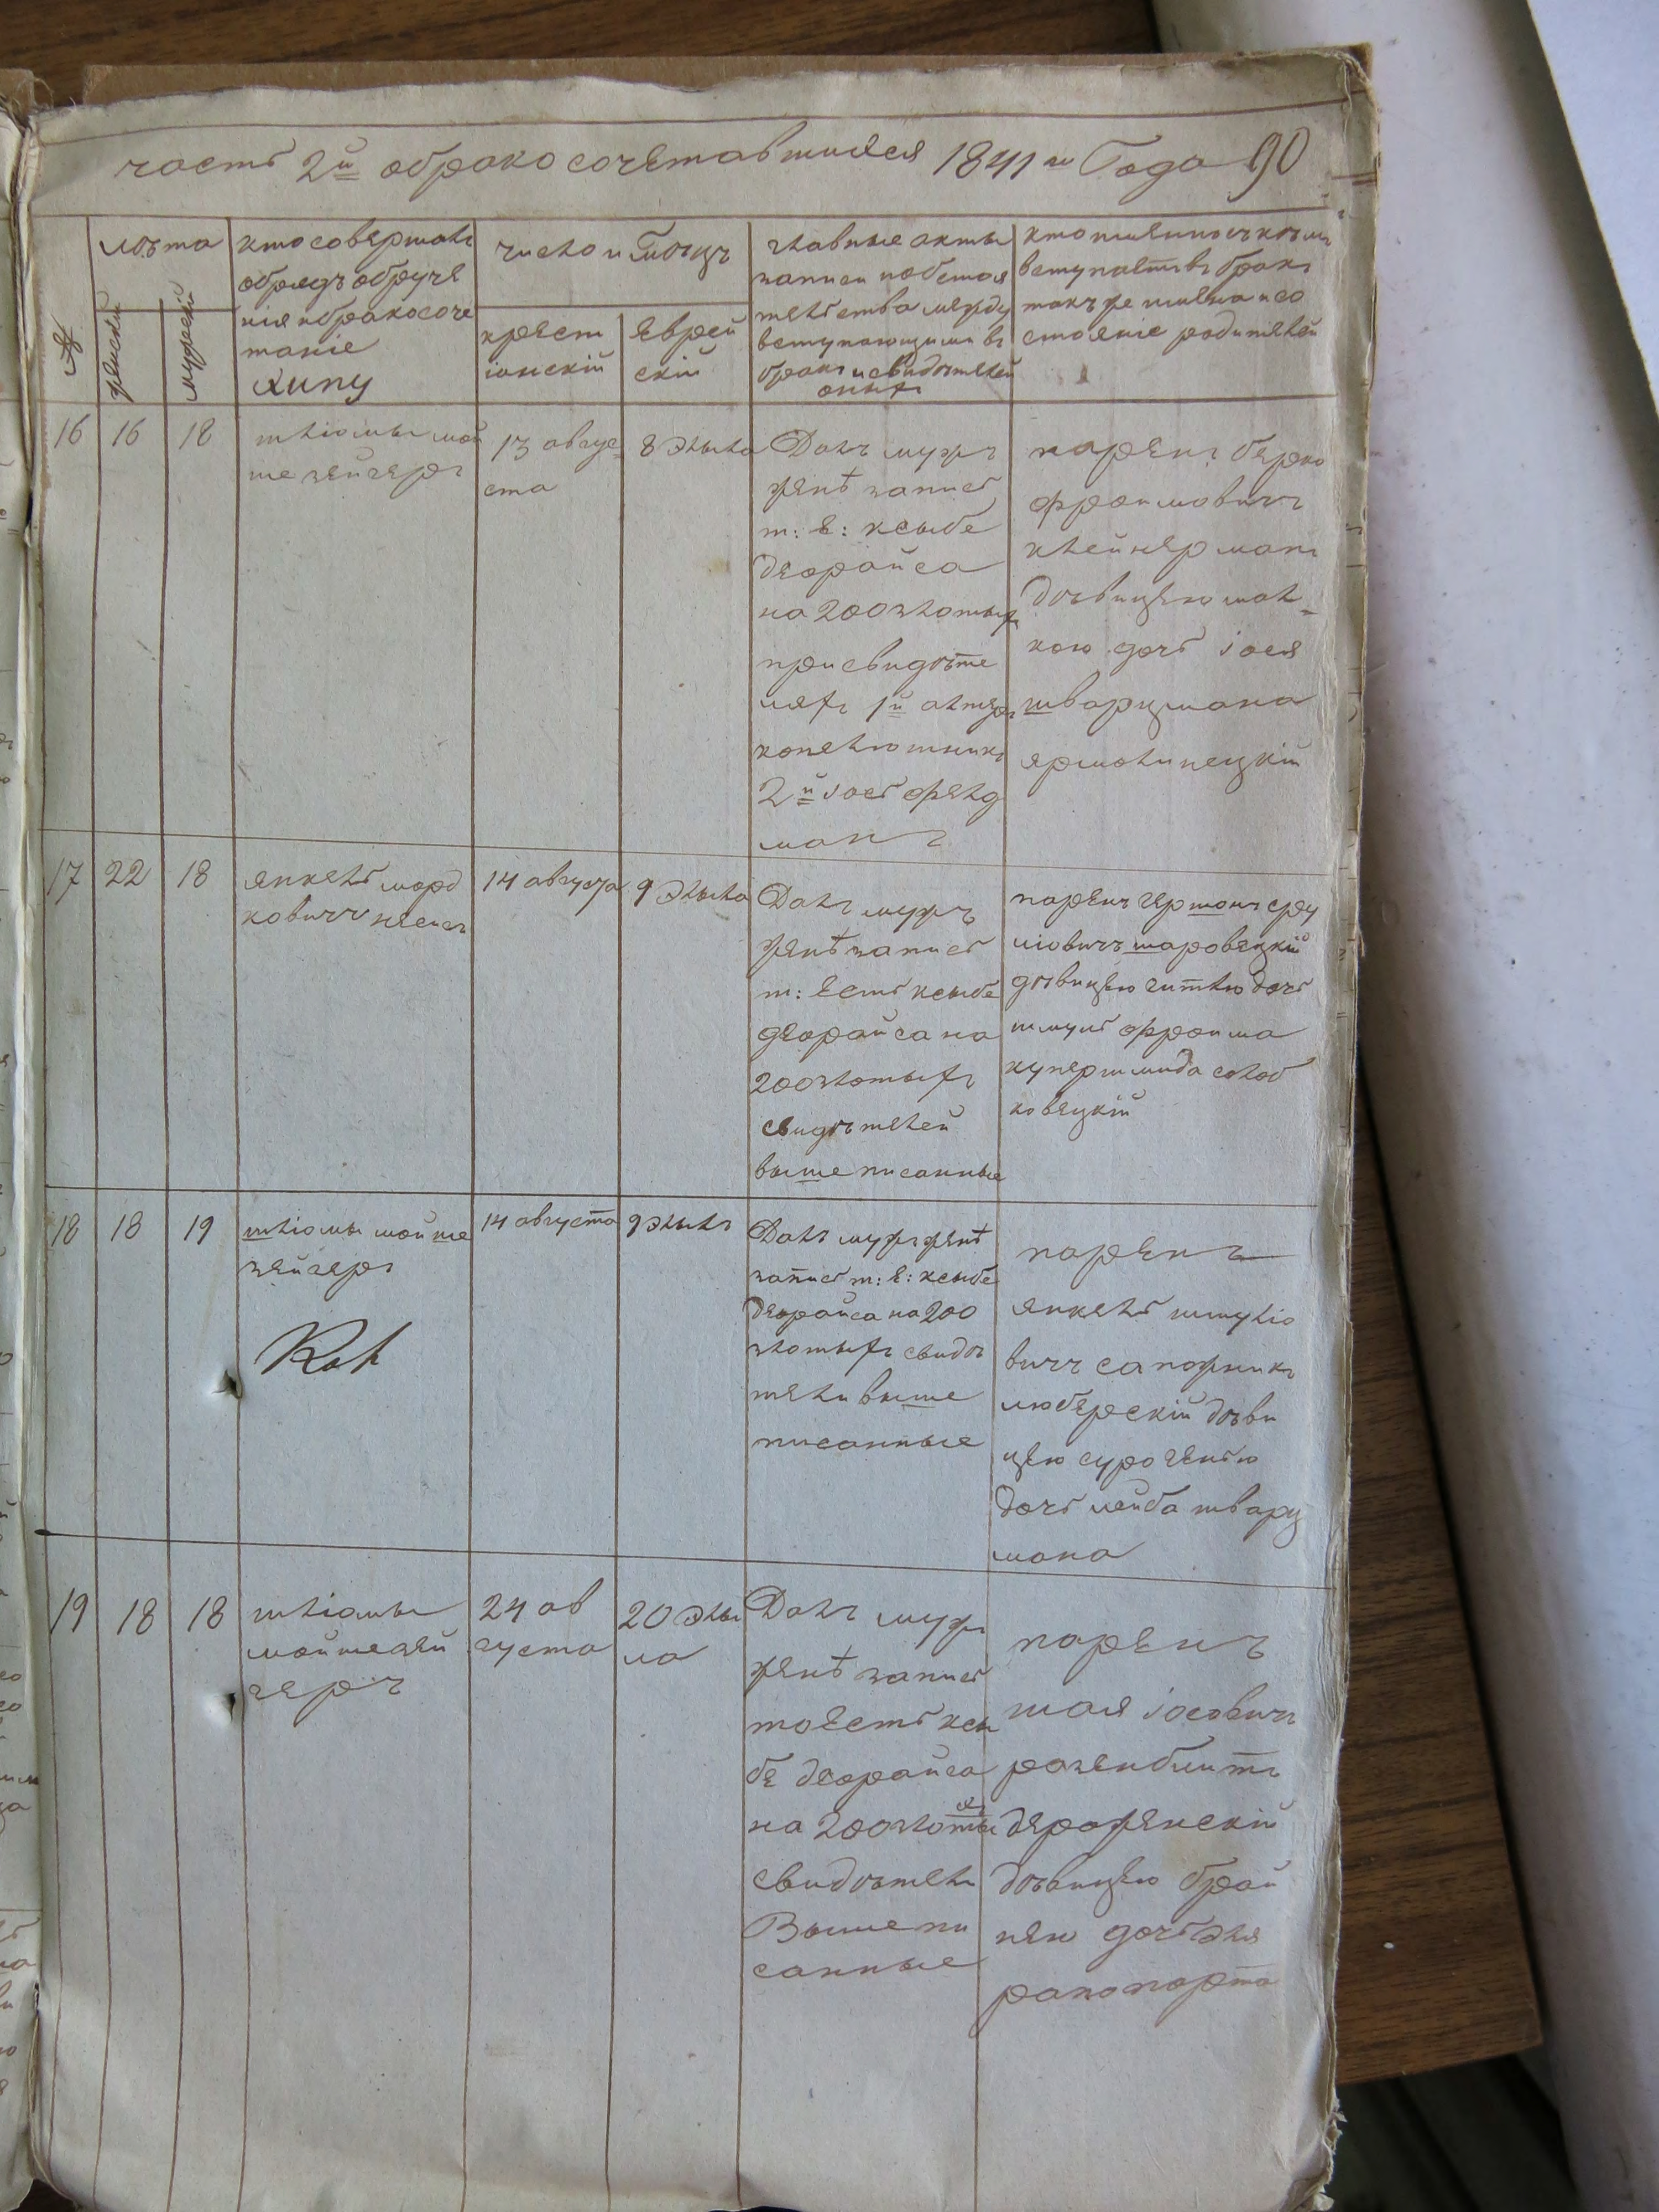 часть 2й обрако сочетавшихся 1841го Года 90
№
лѣта
женский
мужеский
кто совершалъ
обрядъ обруче
нія и бракосоче
таніе
хипу
число и мѣсяцъ
христ
іанскій
Еврей
скій
главные акты
записи и обстоя
тельства между
вступающими въ
бракъ и свидѣтелей
оныхъ
кто именно съ кѣмъ
вступаетъ въ бракъ
такъ же имена и со
стояніе родителей
16
16
18
шліомы мой
ше зейгеръ
13 авгус
ста
8 Элыла
Далъ мужъ
женѣ запись
т: е: ксыбе
деорайса
на 200 злотыхъ
при свидѣте
ляхъ 1й алтеръ
капелюшникъ
2й іось фелд
манъ
парень берко
фроимовичъ
клейнерманъ
дѣвицею мал-
кою дочь іося
шварцмана
ярмолинецкій
17
22
18
янкель морд
ковичъ несисъ
14 августа
9 Элыла
Далъ мужъ
женѣ запись
т: Есть ксыбе
деорайса на
200 злотыхъ
свидѣтелей
выше писанные
парень гершонъ сру
ліовичъ шаровецкій
дѣвицею гитлю дочь
шмуль фроима
купершмида солоб
ковецкій
18
18
19
шліомы мойше
зейгеръ
14 августа
9 Элылъ
Далъ мужъ женѣ
запись т: е: ксыбе
деорайса на 200
злотыхъ свидѣ
тели выше
писанные
парень
янкель шмуліо
вичъ сапожникъ
люберскій дѣви
цею суро генею
дочь лейба шварц
мана
19
18
18
шліомы
мойше зей
геръ
24 ав
густа
20 Элы
ла
Далъ мужъ
женѣ запись
то Есть ксы
бе деорайса
на 200 злотыхъ
свидѣтели
Выше пи
санные
парень
шая іосовичъ
розенблитъ
деражненскій
дѣвицею брай
нею дочь Эля
рапопорта